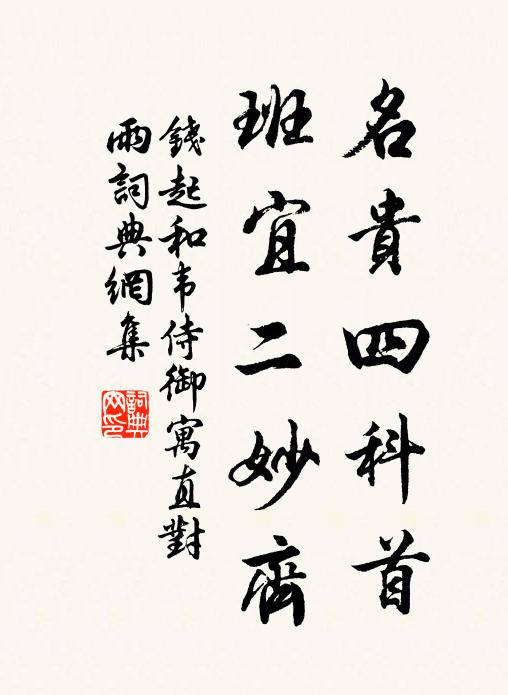 名貴四科首
班宜二妙齊
錢起和韦侍御寓直對
雨詞典網集
詞典网印